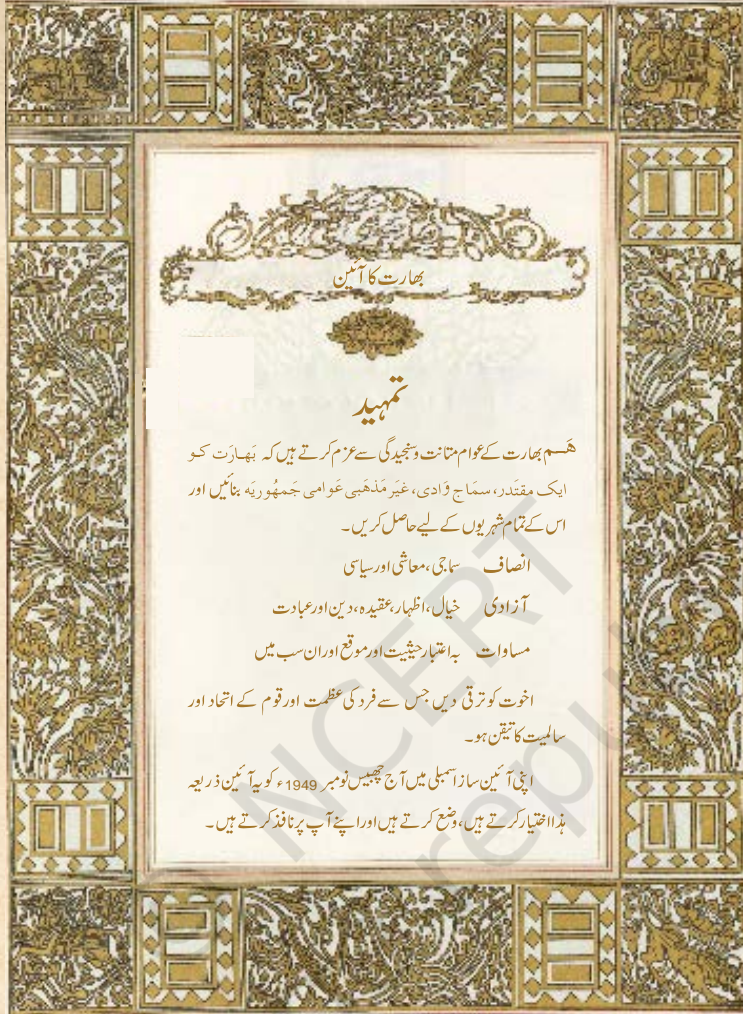 بھارت کا آئین
تمہید
ھَم بھارت کے عوام متانت و سنجیدگی سے عزم کرتے ہیں کہ بَھارَت کو
ایک مقتَدر، سمَاج وَادی، غیَر مَذھَبی عَوامی جَمھُوریَه بنائیں اور
اس کے تمام شہریوں کے لیے حاصل کریں۔
انصاف سماجی، معاشی اور سیاسی
آزادی خیال، اظہار، عقیدہ، دین اور عبادت
مساوات بہ اعتبار حیثیت اور موقع اور ان سب میں
اخوت کو ترقی دیں جس سے فرد کی عظمت اور قوم کے اتحاد اور
سالمیت کا تیقن ہو۔
اپنی آئین ساز اسمبلی میں آج چھبیس نومبر 1949ء کو یہ آئین ذریعہ
ہذا اختیار کرتے ہیں، وضع کرتے ہیں اور اپنے آپ پر نافذ کرتے ہیں۔
NCERT